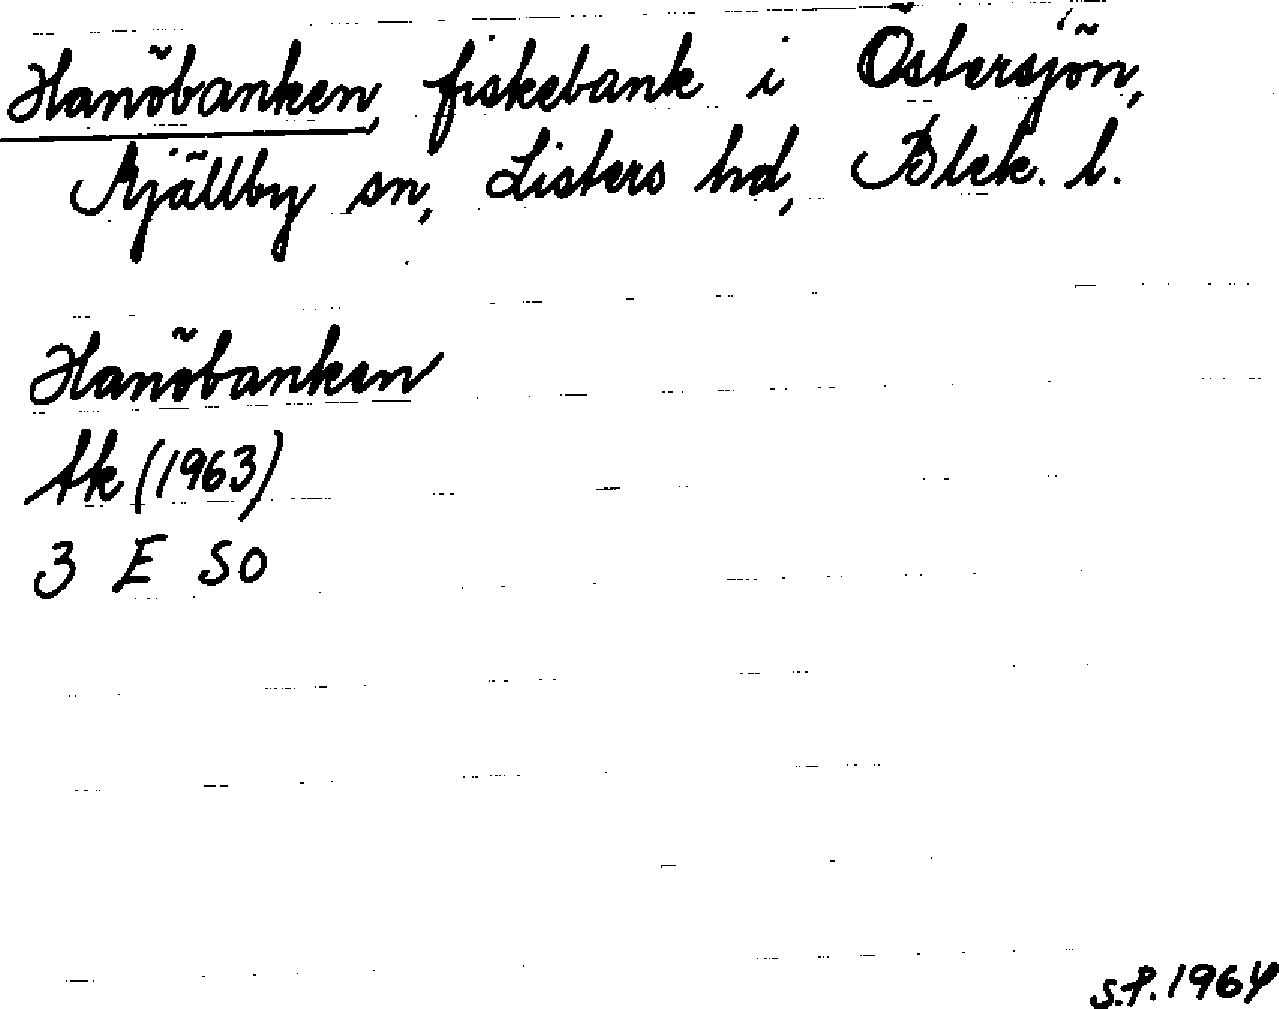 Hanöbanken, fiskebank i Östersjön,
Mjällby sn, Listers hd, Blek. l.
Hanöbanken
Ak (1963)
3 E SO
S.P. 1964